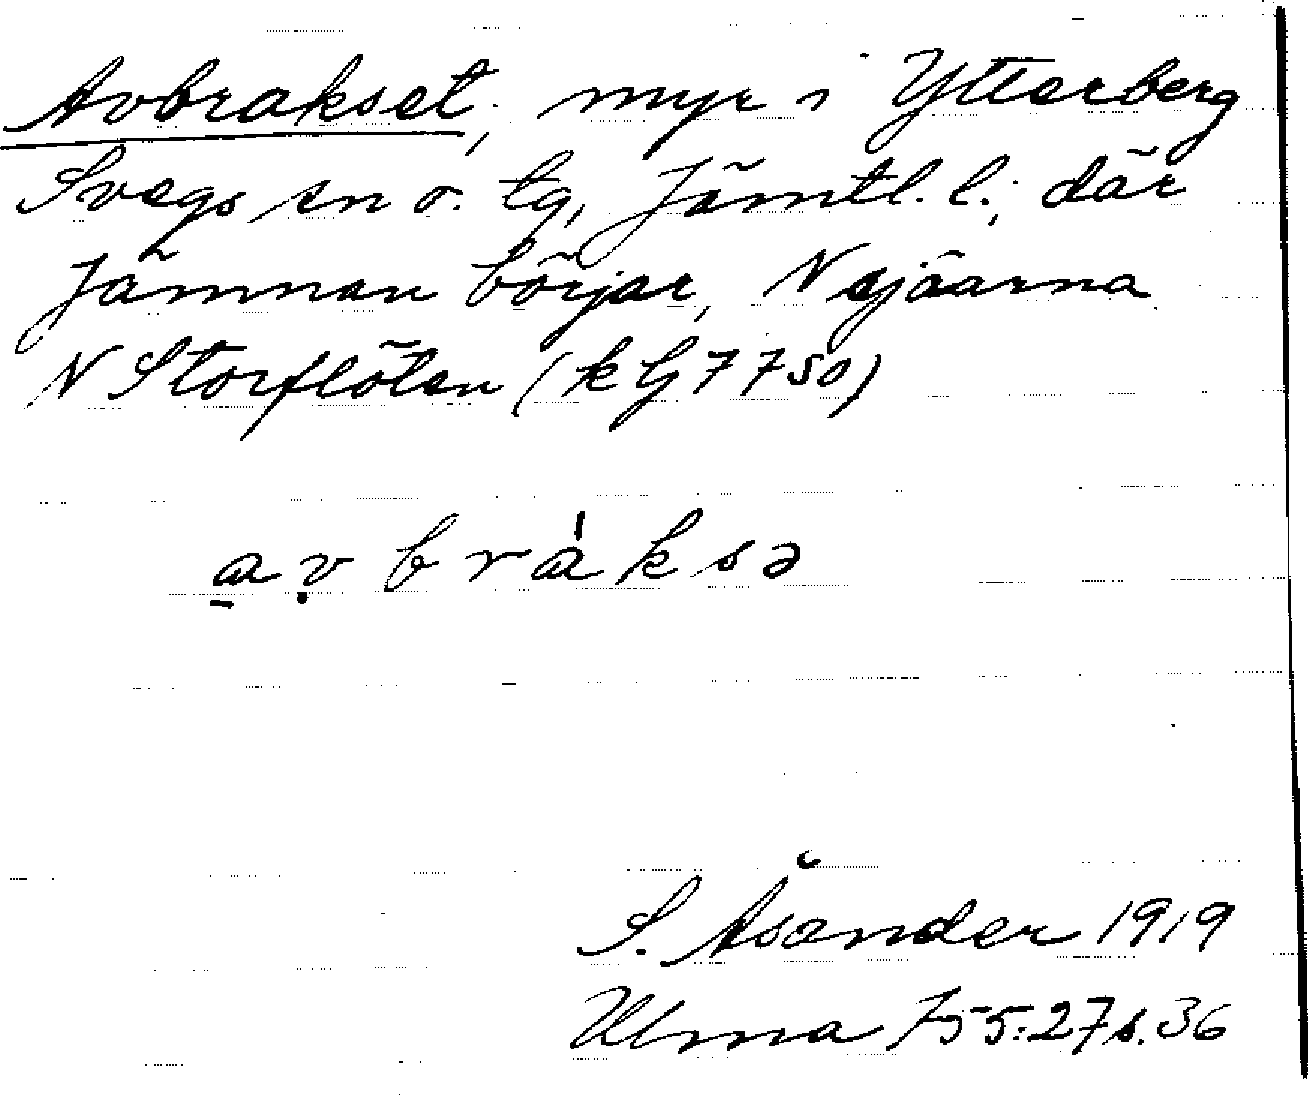 Avbrakset, myr i Ytterberg
Svegs sn o. tg, Jämtl. l.; där
Jämnan börjar, N sjöarna
N Storflöten (k G 7750)
a̱ṿbra̍ksə
S. Åsander 1919
Ulma 755:27 s. 36